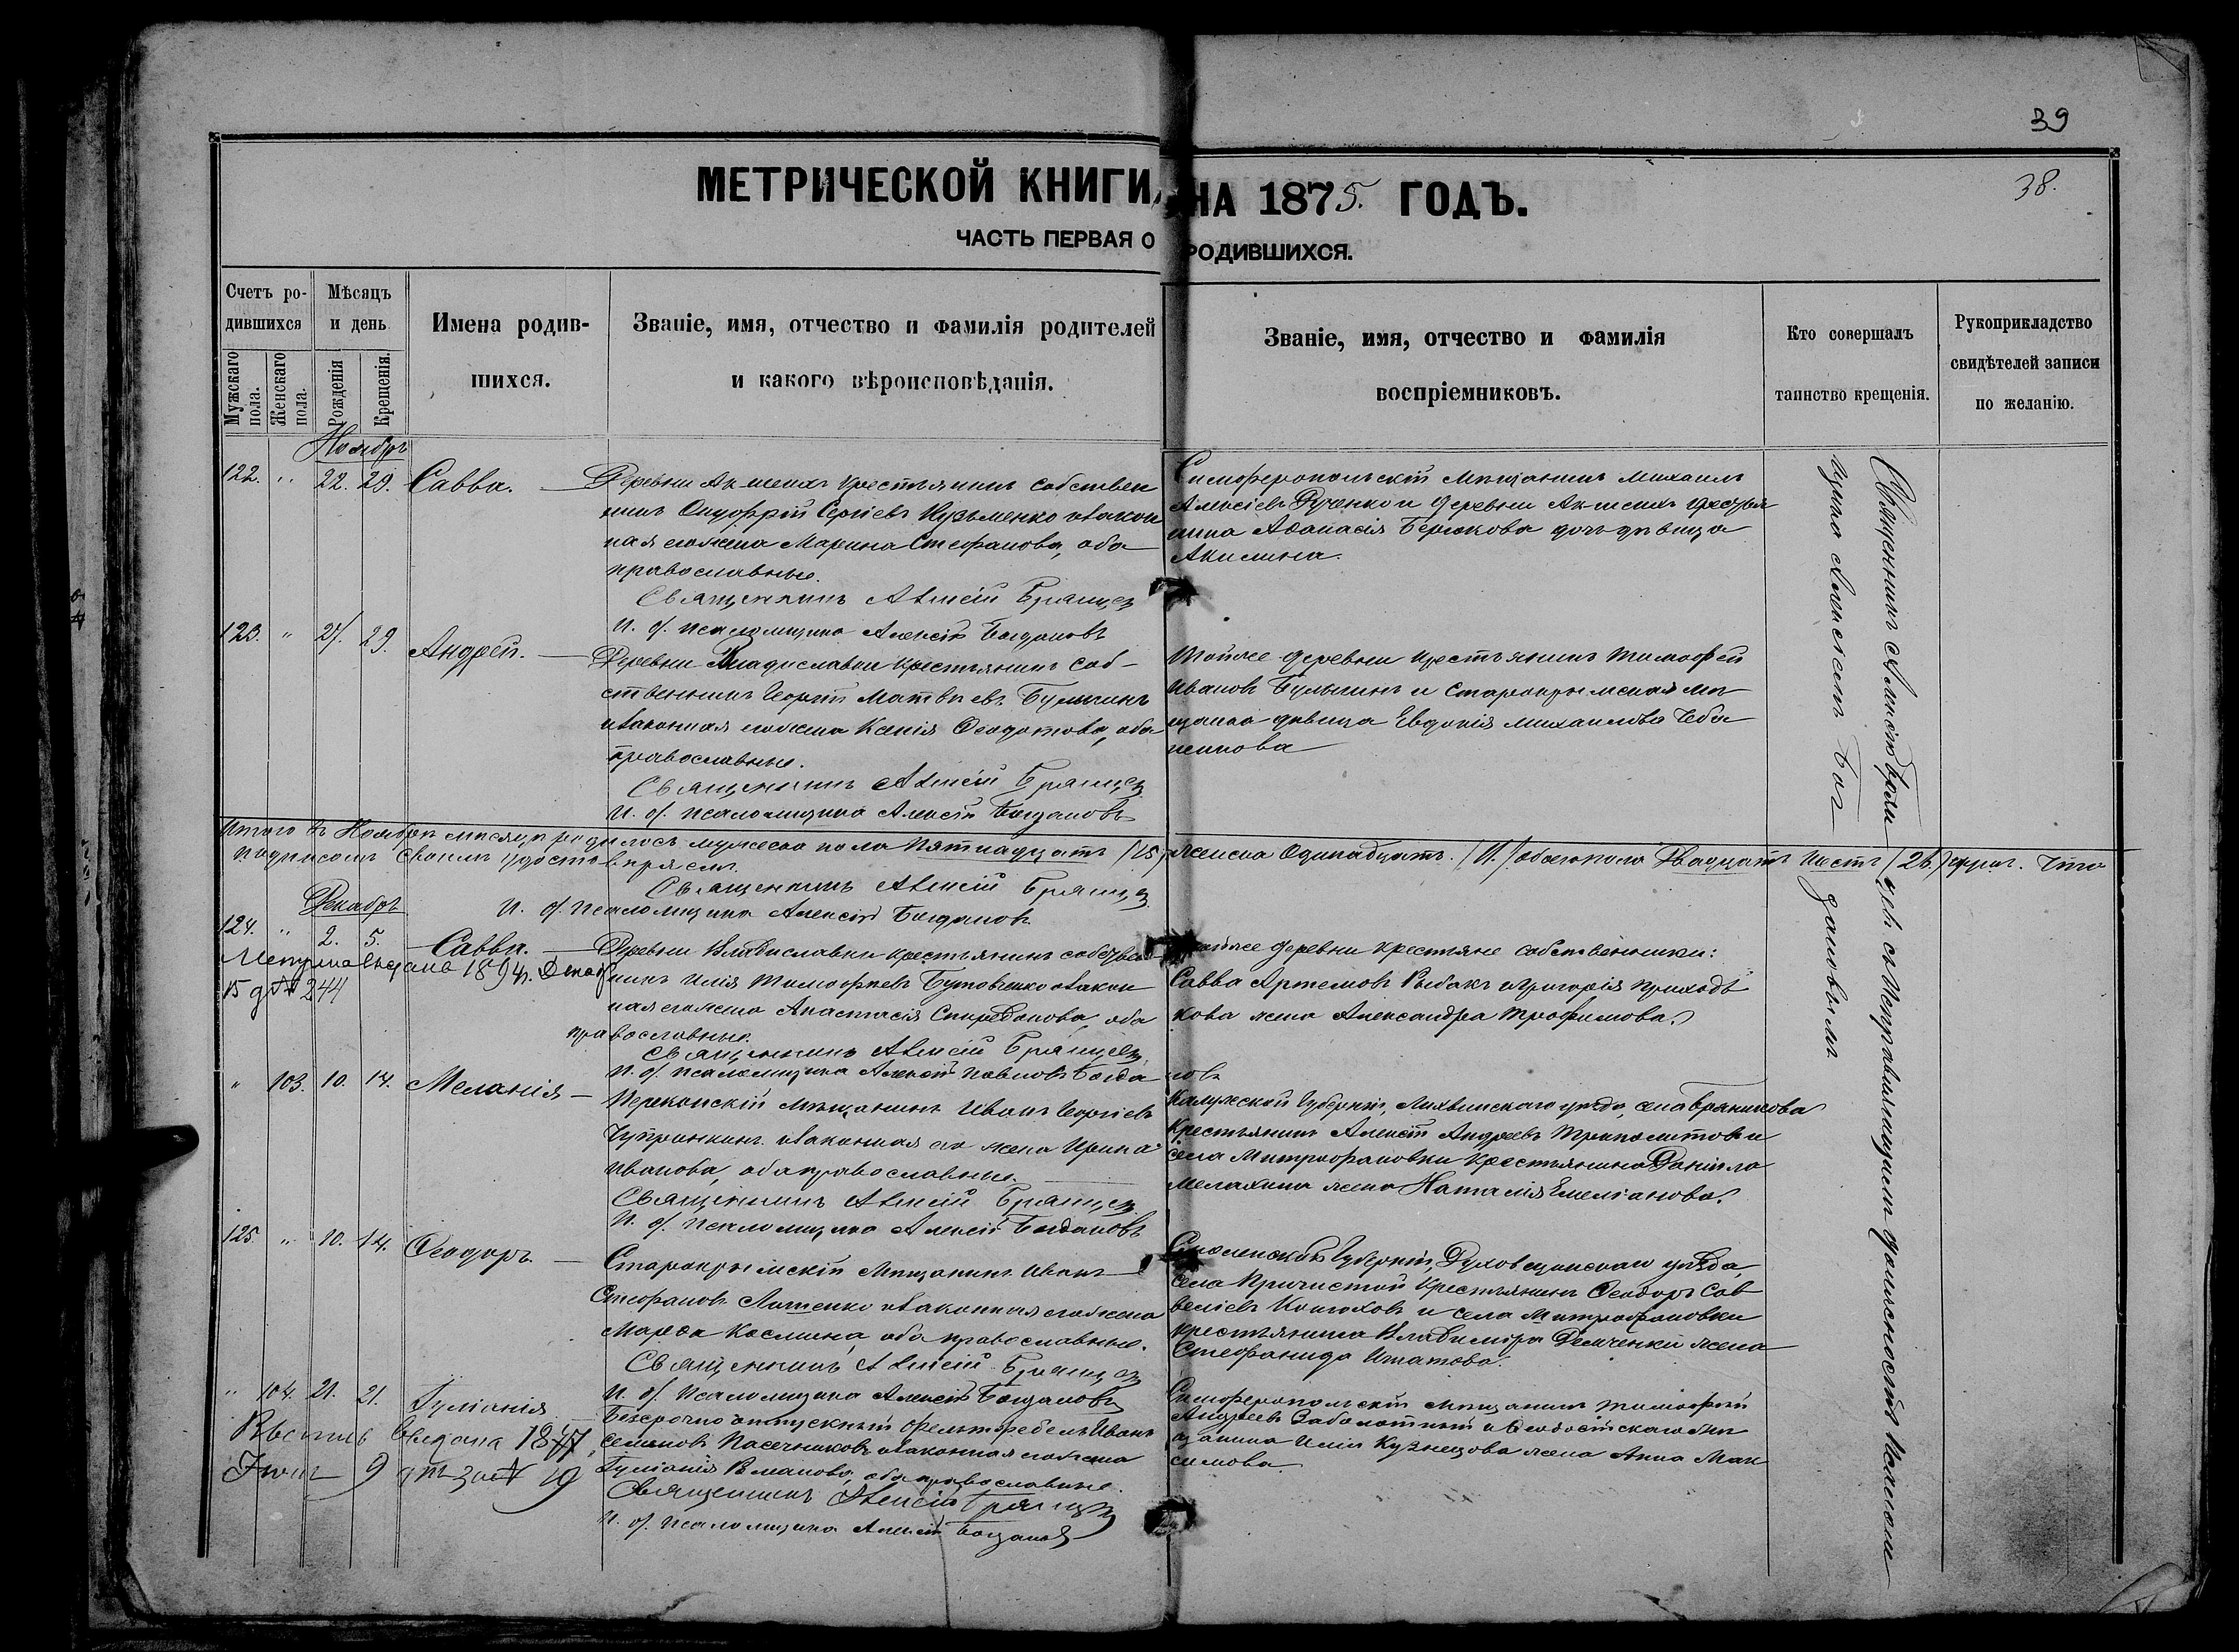 39
38.
МЕТРИЧЕСКОЙ КНИГИ, НА 1875. ГОДЪ.
ЧАСТЬ ПЕРВАЯ О РОДИВШИХСЯ.
Счетъ ро-
дившихся
Мужскаго
пола.
Женскаго
пола.
Мѣсяцъ
и день
Рожденія
Крещенія.
Имена родив-
шихся.
Званіе, имя, отчество и фамилія родителей
и какого вѣроисповѣданія.
Званіе, имя, отчество и фамилія
воспріемниковъ.
Кто совершалъ
таинство крещенія.
Рукоприкладство
свидѣтелей записи
по желанію.
Ноябрь
122. " 22. 29. Савва.
Деревни крестьянинъ собствен
никъ Онуфрій Сергіевъ Кузьменко и закон
ная его жена Марина Стефанова, оба
православные.
Священникъ Алексій Брянцев
И. д. псаломщика Алексій Богдановъ
Симферопольскій мѣщанинъ Михаилъ
Алексіевъ Рученко и деревни крестья
нина Аѳанасія Бирюкова дочь дѣвица
Акилина.
123. " 27. 29. Андрей.
Деревни Владиславки крестьянинъ соб-
ственникъ Георгій Матвѣевъ Булыгинъ
и законная его жена Ксенія Ѳеодотова, оба
православные.
Священникъ Алексій Брянцев
И. д. псаломщика Алексій Богдановъ
Той же деревни крестьянинъ Тимоѳей
Ивановъ Булыгинъ и старокрымская мѣ
щанка дѣвица Евдокія Михаилова Чеба
ненкова
Итого въ Ноябрѣ мѣсяцѣ родилось мужеска пола пятнадцать (15) женска одинадцать (11) обоего пола двадцать шесть (26) душъ. Что
подписомъ своимъ удостовѣряемъ.
Священникъ Алексій Брянцев
И. д. псаломщика Алексій Богдановъ.
Декабрь
124. " 2. 5. Савва.
Метрика выдана 1894 г. Декаб
15 д № 244
Деревни Владиславки крестьянинъ собствен
никъ Илія Тимоѳеевъ Бутовченко и закон
ная его жена Анастасія Спиридонова, оба
православные.
Священникъ Алексій Брянцев
И. д. псаломщика Алексій Павловъ Богдановъ
Той же деревни крестьяне собственники:
Савва Артемовъ Рыбакъ и Григорія Приходь
кова жена Александра Трофимова.
" 103. 10. 14. Меланія
Перекопскій мѣщанинъ Иванъ Георгіевъ
Чупринкинъ и законная его жена Ирина
Иванова, оба православные.
Священникъ Алексій Брянцев
И. д. псаломщика Алексій Богдановъ
Калужской губерніи, Лихвинскаго уѣзда, села
крестьянинъ Алексій Андреевъ Триполитовъ и
села Митрофановки крестьянина Даніила
Мелахина жена Наталія Емеліанова.
125. " 10. 14. Ѳеодоръ.
Старокрымскій мѣщанинъ Иванъ
Стефановъ и законная его жена
Марѳа Космина, оба православные.
Священникъ Алексій Брянцев
И. д. псаломщика Алексій Богдановъ
Смоленской губерніи, Духовщинскаго уѣзда,
села Пречистой крестьянинъ Ѳеодоръ Сав
веліевъ Конюховъ и села Митрофановки
крестьянина Владиміра Демченки жена
Стефанида Игнатова.
" 104. 21. 21. Іуліанія
выдана
Іюня 9 дня за № 19
Безсрочно отпускный фельдфебель Иванъ
Семеновъ Пасечниковъ и законная его жена
Іуліанія Романова, оба православные.
Священникъ Алексій Брянцев
И. д. псаломщика Алексій Богдановъ
Симферопольскій мѣщанинъ Тимоѳей
Андреевъ Заболотный и Ѳеодосійскаго мѣ
щанина Иліи Кузнецова жена Анна Мак
симова.
Священникъ Алексій Брян
цевъ съ исправляющимъ должность псаломщика Алексіемъ Богдановымъ